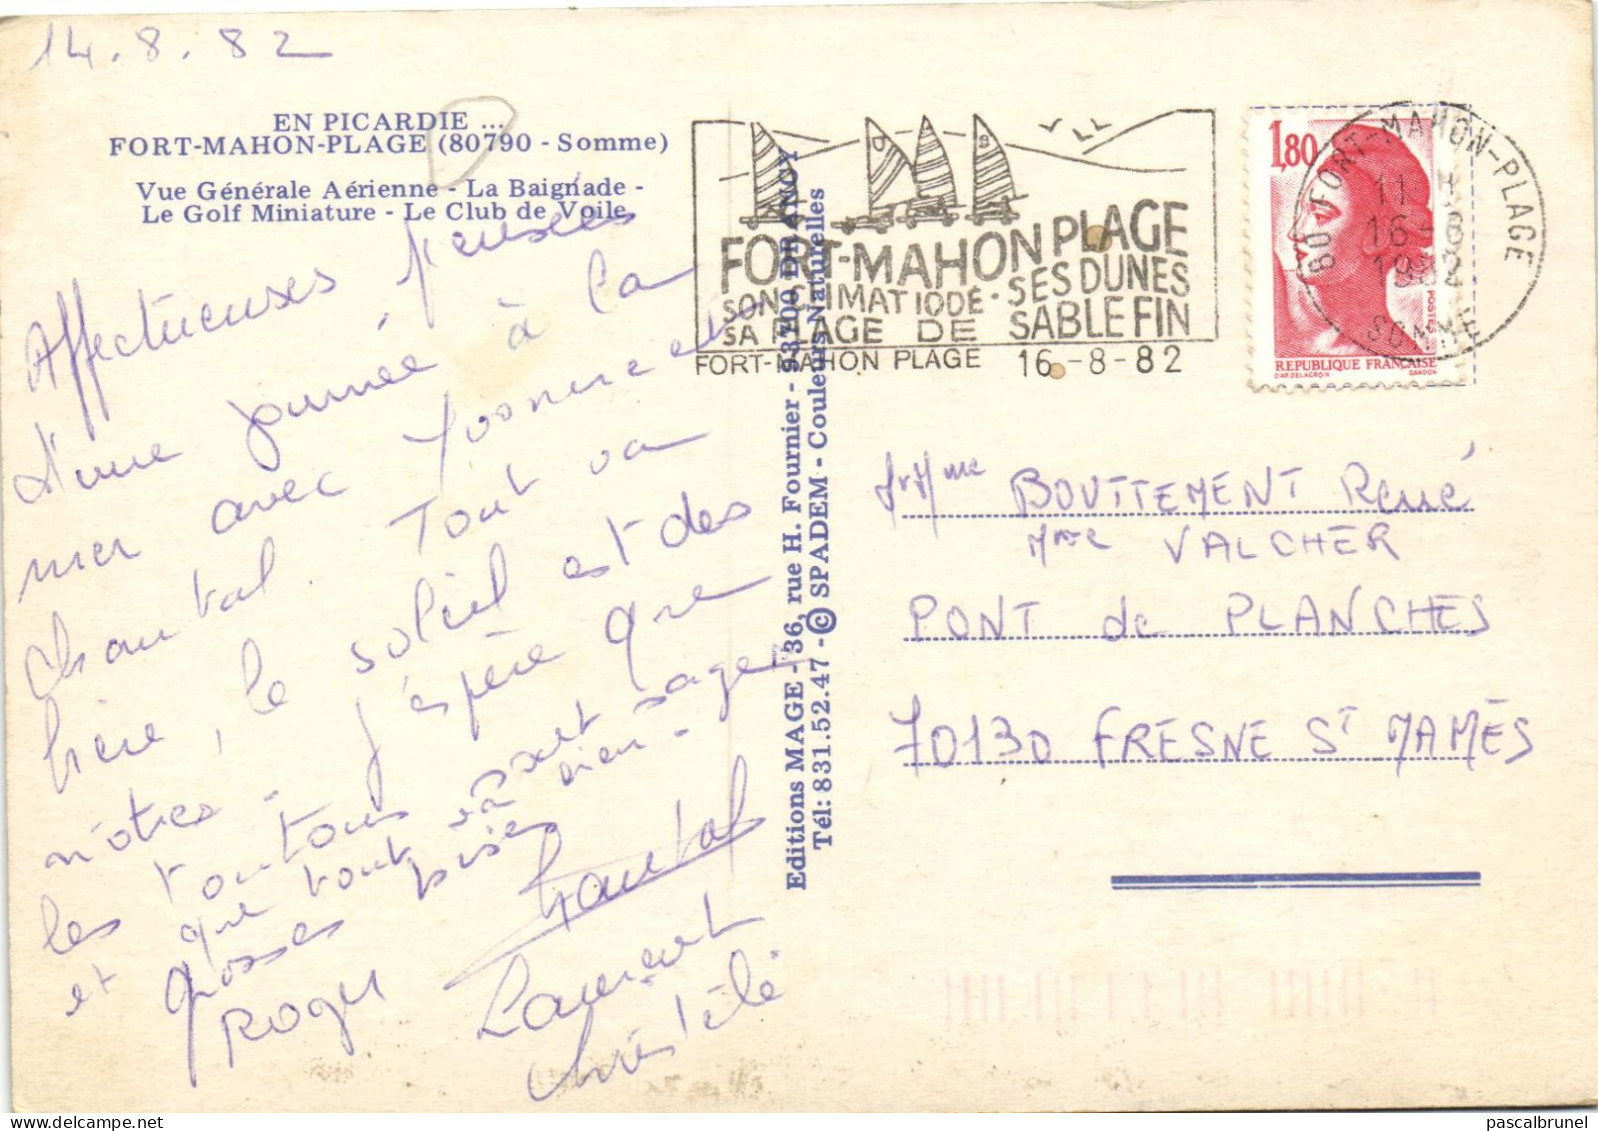 14.8.82
EN PICARDIE ...
FORT-MAHON-PLAGE (80790 - Somme)
Vue Générale Aérienne - La Baignade -
Le Golf Miniature - Le Club de Voile
Affectueuses pensées
d'une journée à la
mer avec Yvonne et
Chantal. Tout va
bien, le soleil est des
nôtres - j'espère que
les toutous sont sages
et que tout va bien -
grosses bises
Chantal
Roger
Laurent
Christèle
Editions MAGE - 36, rue H. Fournier - 93700 DRANCY
Tél: 831.52.47 - © SPADEM - Couleurs Naturelles
FORT-MAHON PLAGE
SON CLIMAT IODÉ - SES DUNES
SA PLAGE DE SABLE FIN
FORT-MAHON PLAGE 16-8-82
80 FORT-MAHON-PLAGE
11 H
16-8
1982
SOMME
1,80
POSTES
REPUBLIQUE FRANÇAISE
D'AP. DELACROIX GANDON
Mr Mme BOUTTEMENT René
Mme VALCHER
PONT de PLANCHES
70130 FRESNE ST MAMÈS
pascalbrunel